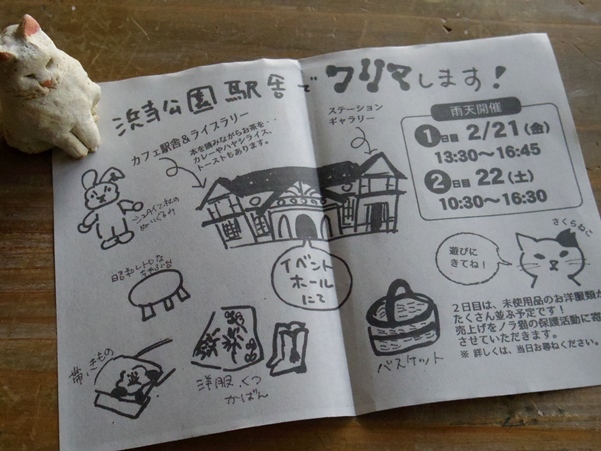 浜寺公園駅舎でフリマします!
カフェ駅舎&ライブラリー
本を読みながらお茶を・・
カレーやハヤシライス、
トーストもあります。
ステーション
ギャラリー
雨天開催
1日目 2/21(金)
13:30〜16:45
2日目 22(土)
10:30〜16:30
ぬいぐるみ
昭和レトロな
ちゃぶ台
イベント
ホール
にて
帯、きもの
洋服、くつ
かばん
バスケット
さくらねこ
遊びに
きてね!
2日目は、未使用品のお洋服類が
たくさん並ぶ予定です!
売上げをノラ猫の保護活動に寄
させていただきます。
※ 詳しくは、当日お尋ねください。